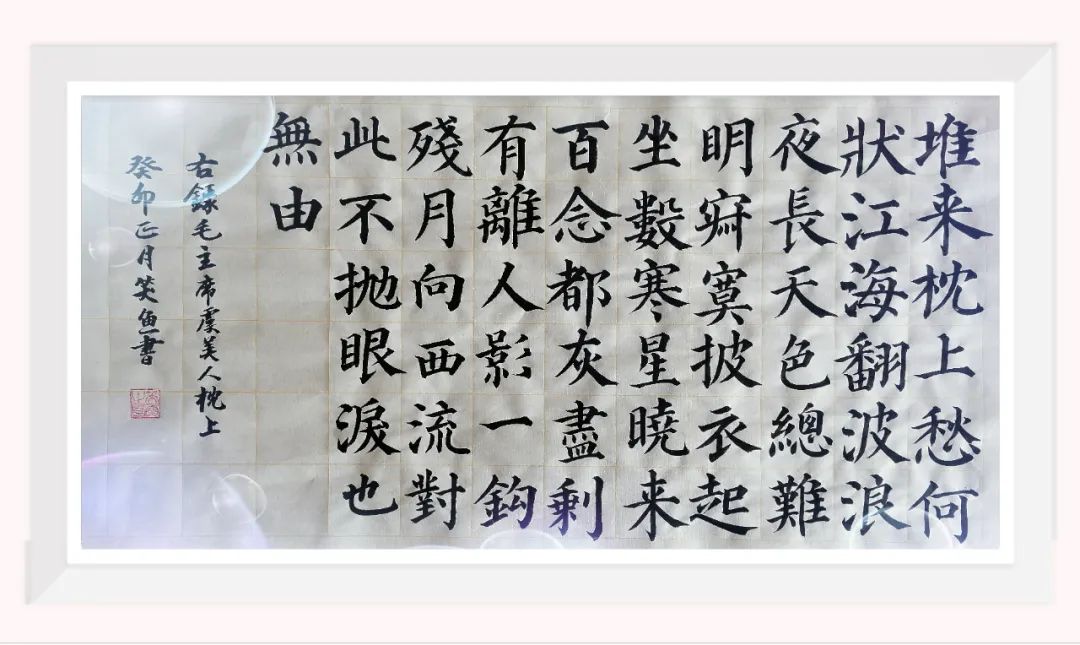 堆来枕上愁何
狀江海翻波浪
夜長天色總難
明寂寞披衣起
坐數寒星曉来
百念都灰盡剩
有離人影一鈎
殘月向西流對
此不抛眼淚也
無由
右錄毛主席虞美人枕上
癸卯正月笑魚書